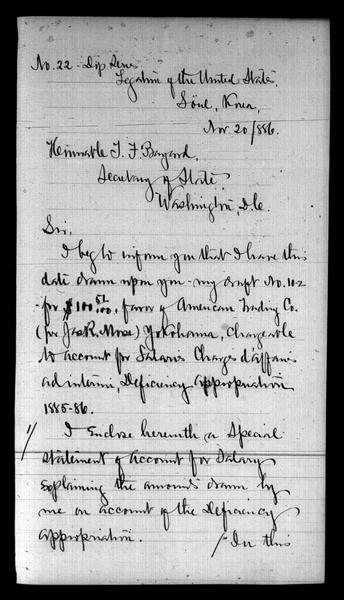 No. 22 - Dip Series
Legation of the United States,
Söul, Korea,
Nov 20/886.
Honorable T. F. Bayard,
Secretary of State,
Washington, D.C.
Sir,
I beg to inform you that I have this
date drawn upon you - my draft No. 102
- for $100 51/100, favor of American Trading Co.
(for Jas R. Morse) Yokohama, Chargeable
to account for Salaries Charges d'affaires
ad interim, Deficiency appropriation
1885-86.
// I Enclose herewith a Special
statement of account for Salary
explaining the amounts drawn by
me on account of the Deficiency
appropriation.
/ In this